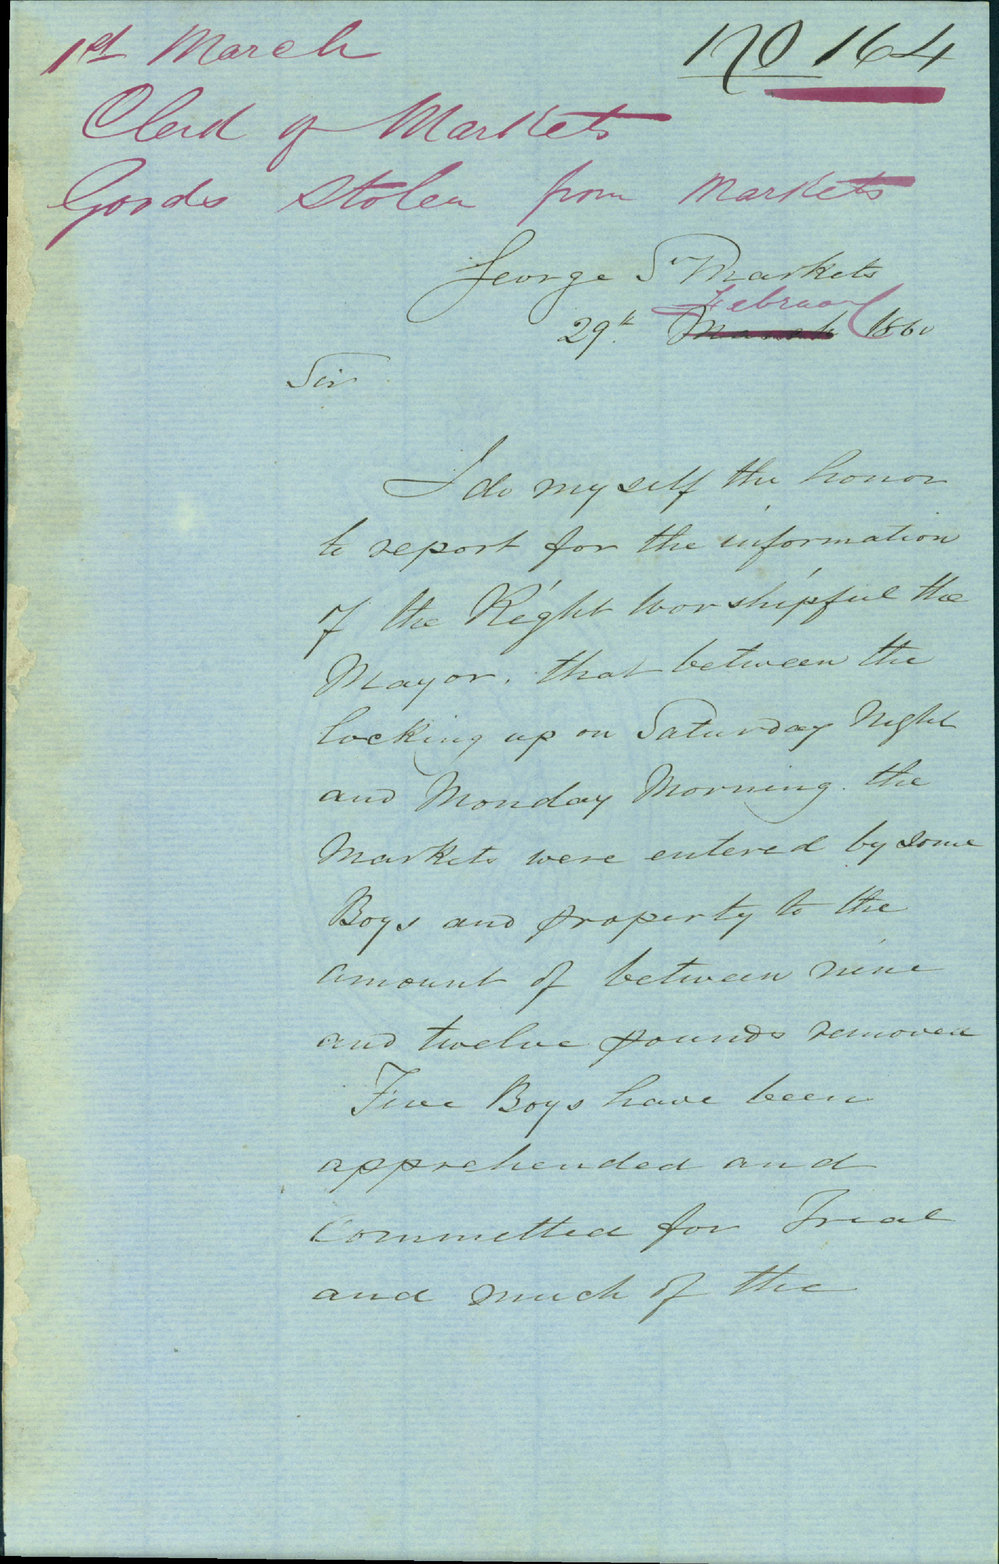 1st March
No 164
Clerk of Markets
Goods stolen from Markets
George St Markets
February
29th March 1860
Sir
I do myself the honor
to report for the information
of the Right Worshipful the
Mayor, that between the
locking up on Saturday Night
and Monday Morning. the
Markets were entered by some
Boys and property to the
amount of between nine
and twelve pounds removed
Five Boys have been
apprehended and
Committed for Trial
and much of the